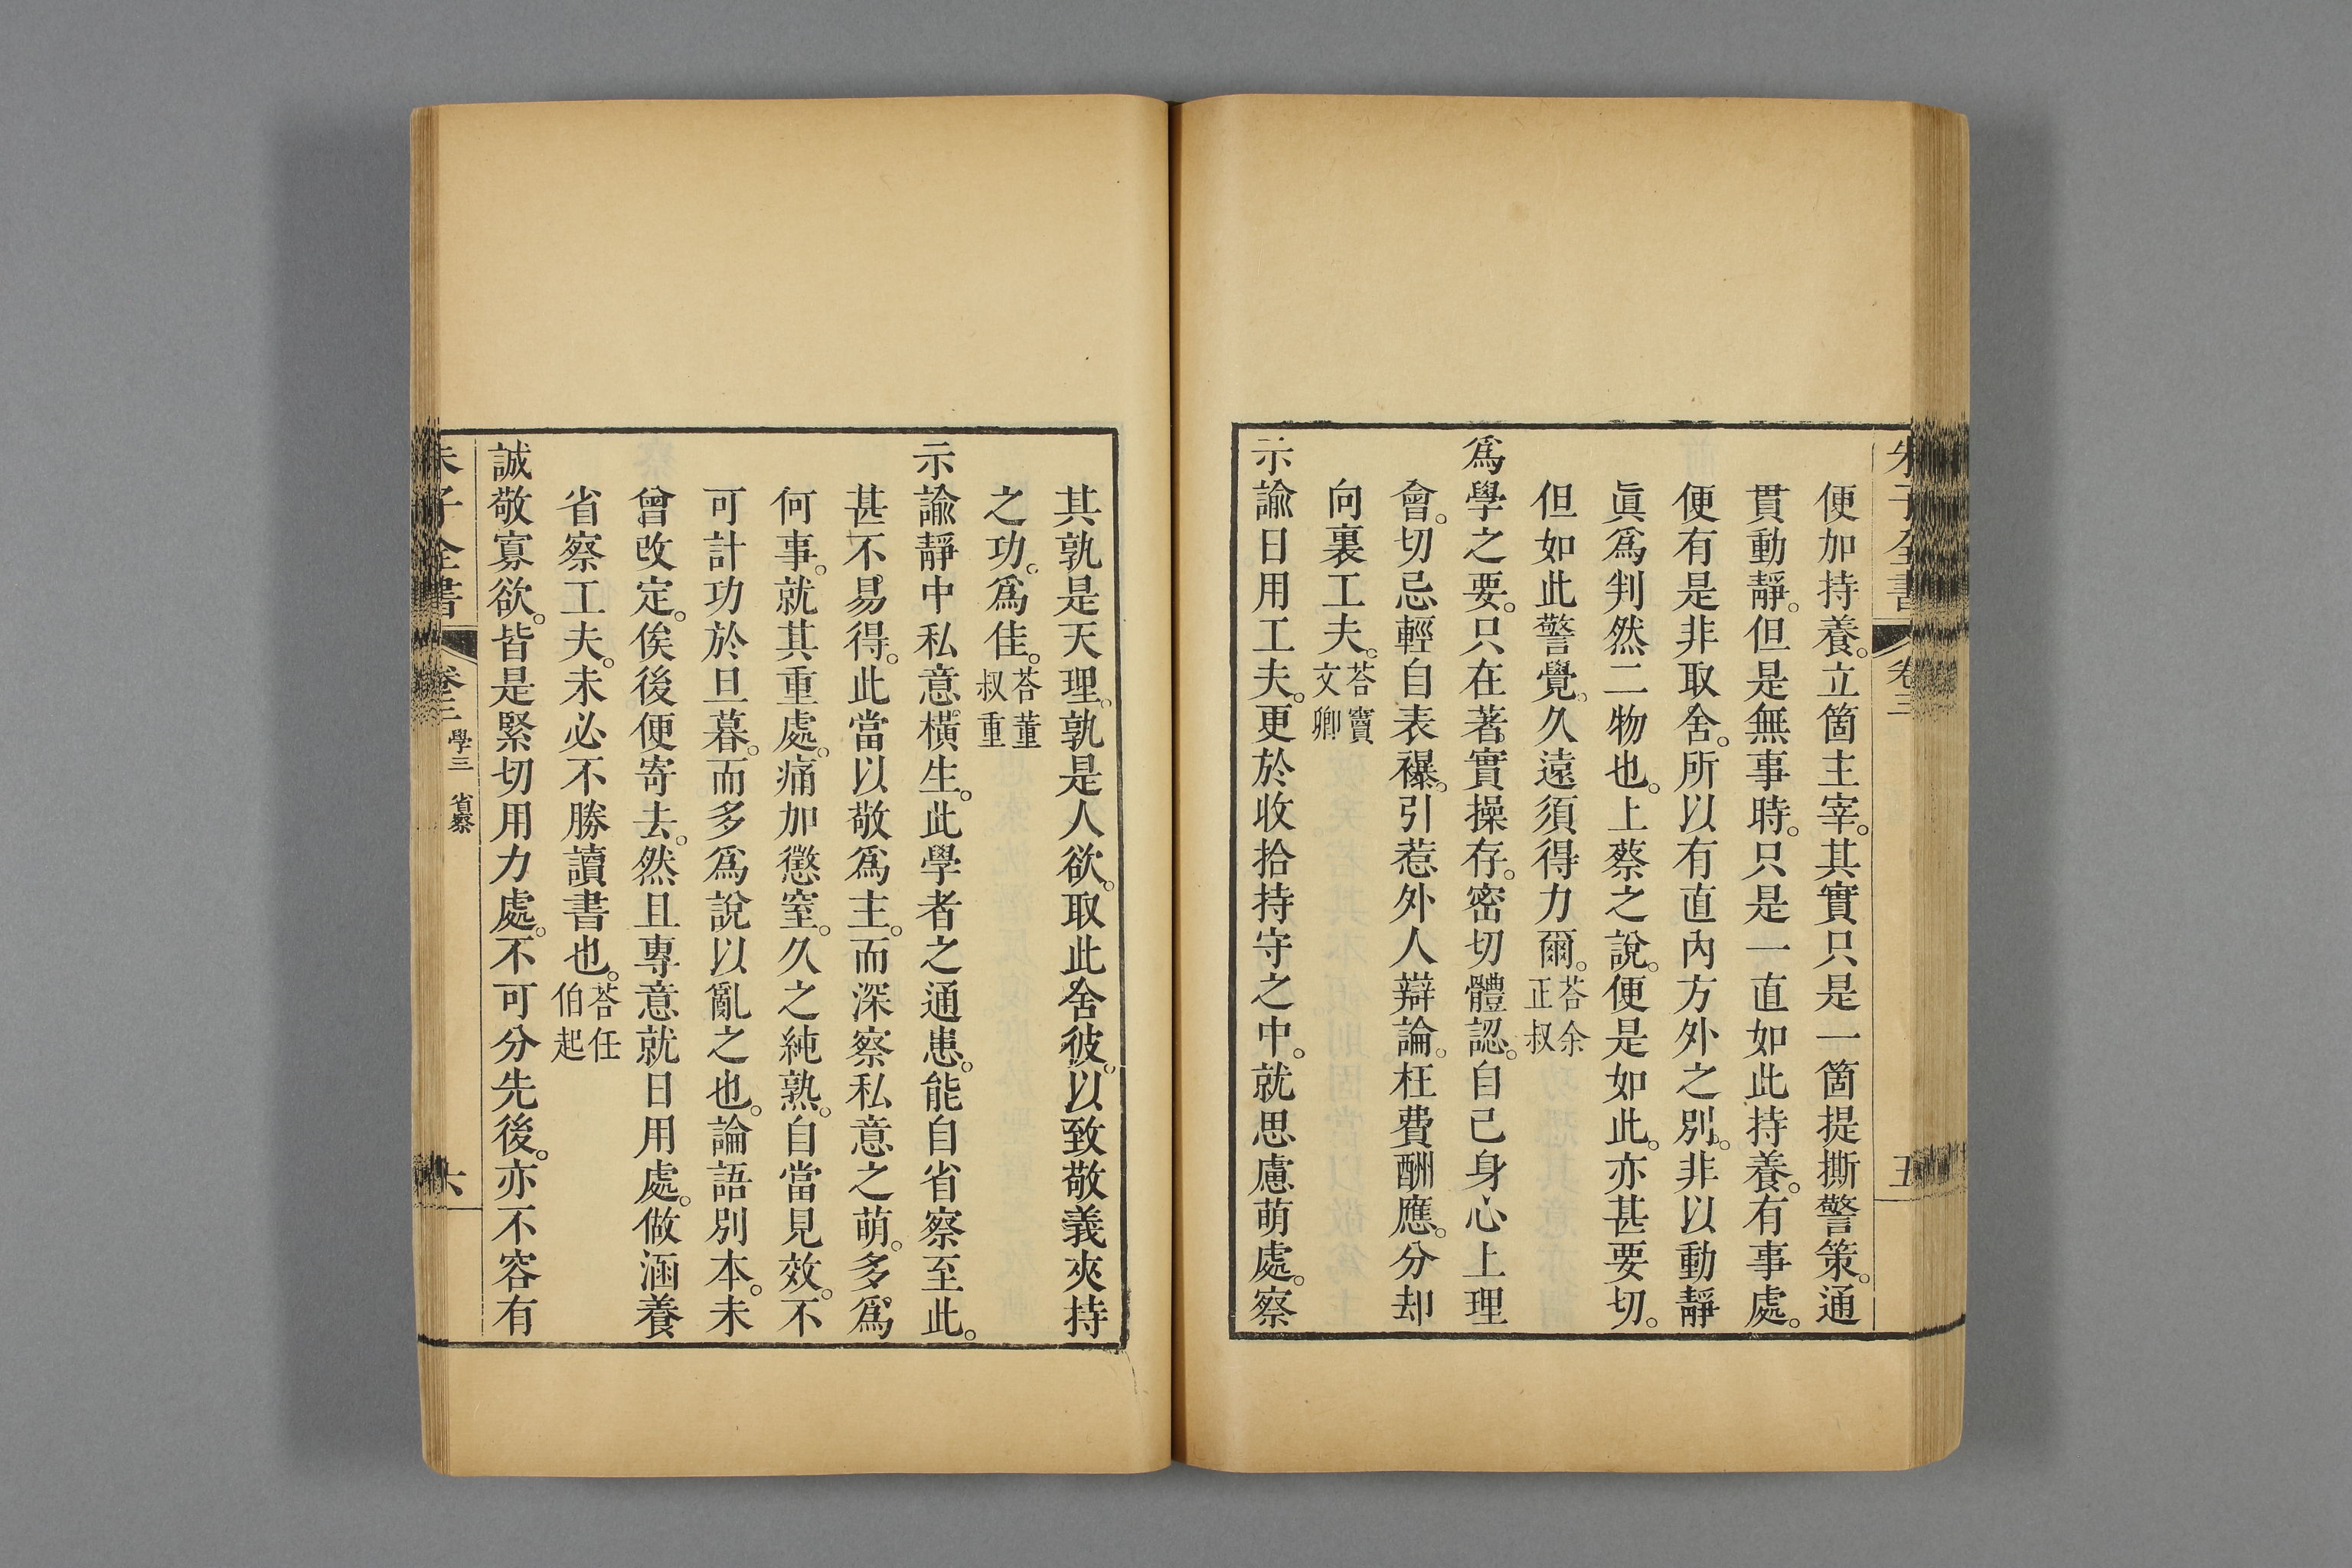 朱子全書 卷三 五
便加持養。立箇主宰。其實只是一箇提撕警策。通
貫動靜。但是無事時。只是一直如此持養。有事處。
便有是非取舍。所以有直內方外之別。非以動靜
眞爲判然二物也。上蔡之說。便是如此。亦甚要切。
但如此警覺。久遠須得力爾。答余正叔
爲學之要。只在著實操存。密切體認。自己身心上理
會。切忌輕自表襮。引惹外人辯論。枉費酬應。分却
向裏工夫。答竇文卿
示諭日用工夫。更於收拾持守之中。就思慮萌處。察
其孰是天理。孰是人欲。取此舍彼。以致敬義夾持
之功。爲佳。答董叔重
示諭靜中私意橫生。此學者之通患。能自省察至此。
甚不易得。此當以敬爲主。而深察私意之萌。多爲
何事。就其重處。痛加懲窒。久之純熟。自當見效。不
可計功於旦暮。而多爲說以亂之也。論語別本。未
曾改定。俟後便寄去。然且專意就日用處。做涵養
省察工夫。未必不勝讀書也。答任伯起
誠敬寡欲。皆是緊切用力處。不可分先後。亦不容有
朱子全書 卷三 學三 省察 六